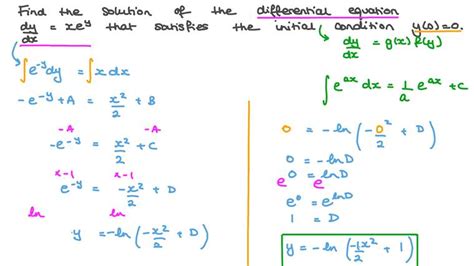 Find the solution of the differential equation
dy/dx = xe^y that satisfies the initial condition y(0)=0.
dy/dx = g(x) f(y)
∫e^-y dy = ∫x dx
∫e^ax dx = 1/a e^ax + C
-e^-y + A = x²/2 + B
-A -A
-e^-y = x²/2 + C
x-1 x-1
e^-y = -x²/2 + D
ln ln
y = -ln(-x²/2 + D)
0 = -ln(-0²/2 + D)
0 = -ln D
0 = ln D
e e
e^0 = e^ln D
1 = D
y = -ln(-1/2 x² + 1)